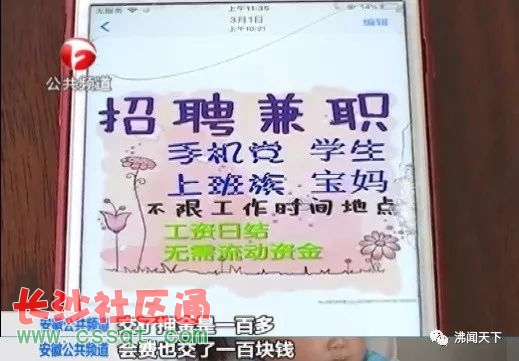 无服务
上午11:35
14%
3月1日
上午10:21
编辑
公共频道
招聘兼职
手机党 学生
上班族 宝妈
不限工作时间地点
工资日结
无需流动资金
长沙社区通
www.cssqt.com
安徽公共频道
交了押金是一百多
安徽公共频道
会费也交了一百块钱
沸闻天下